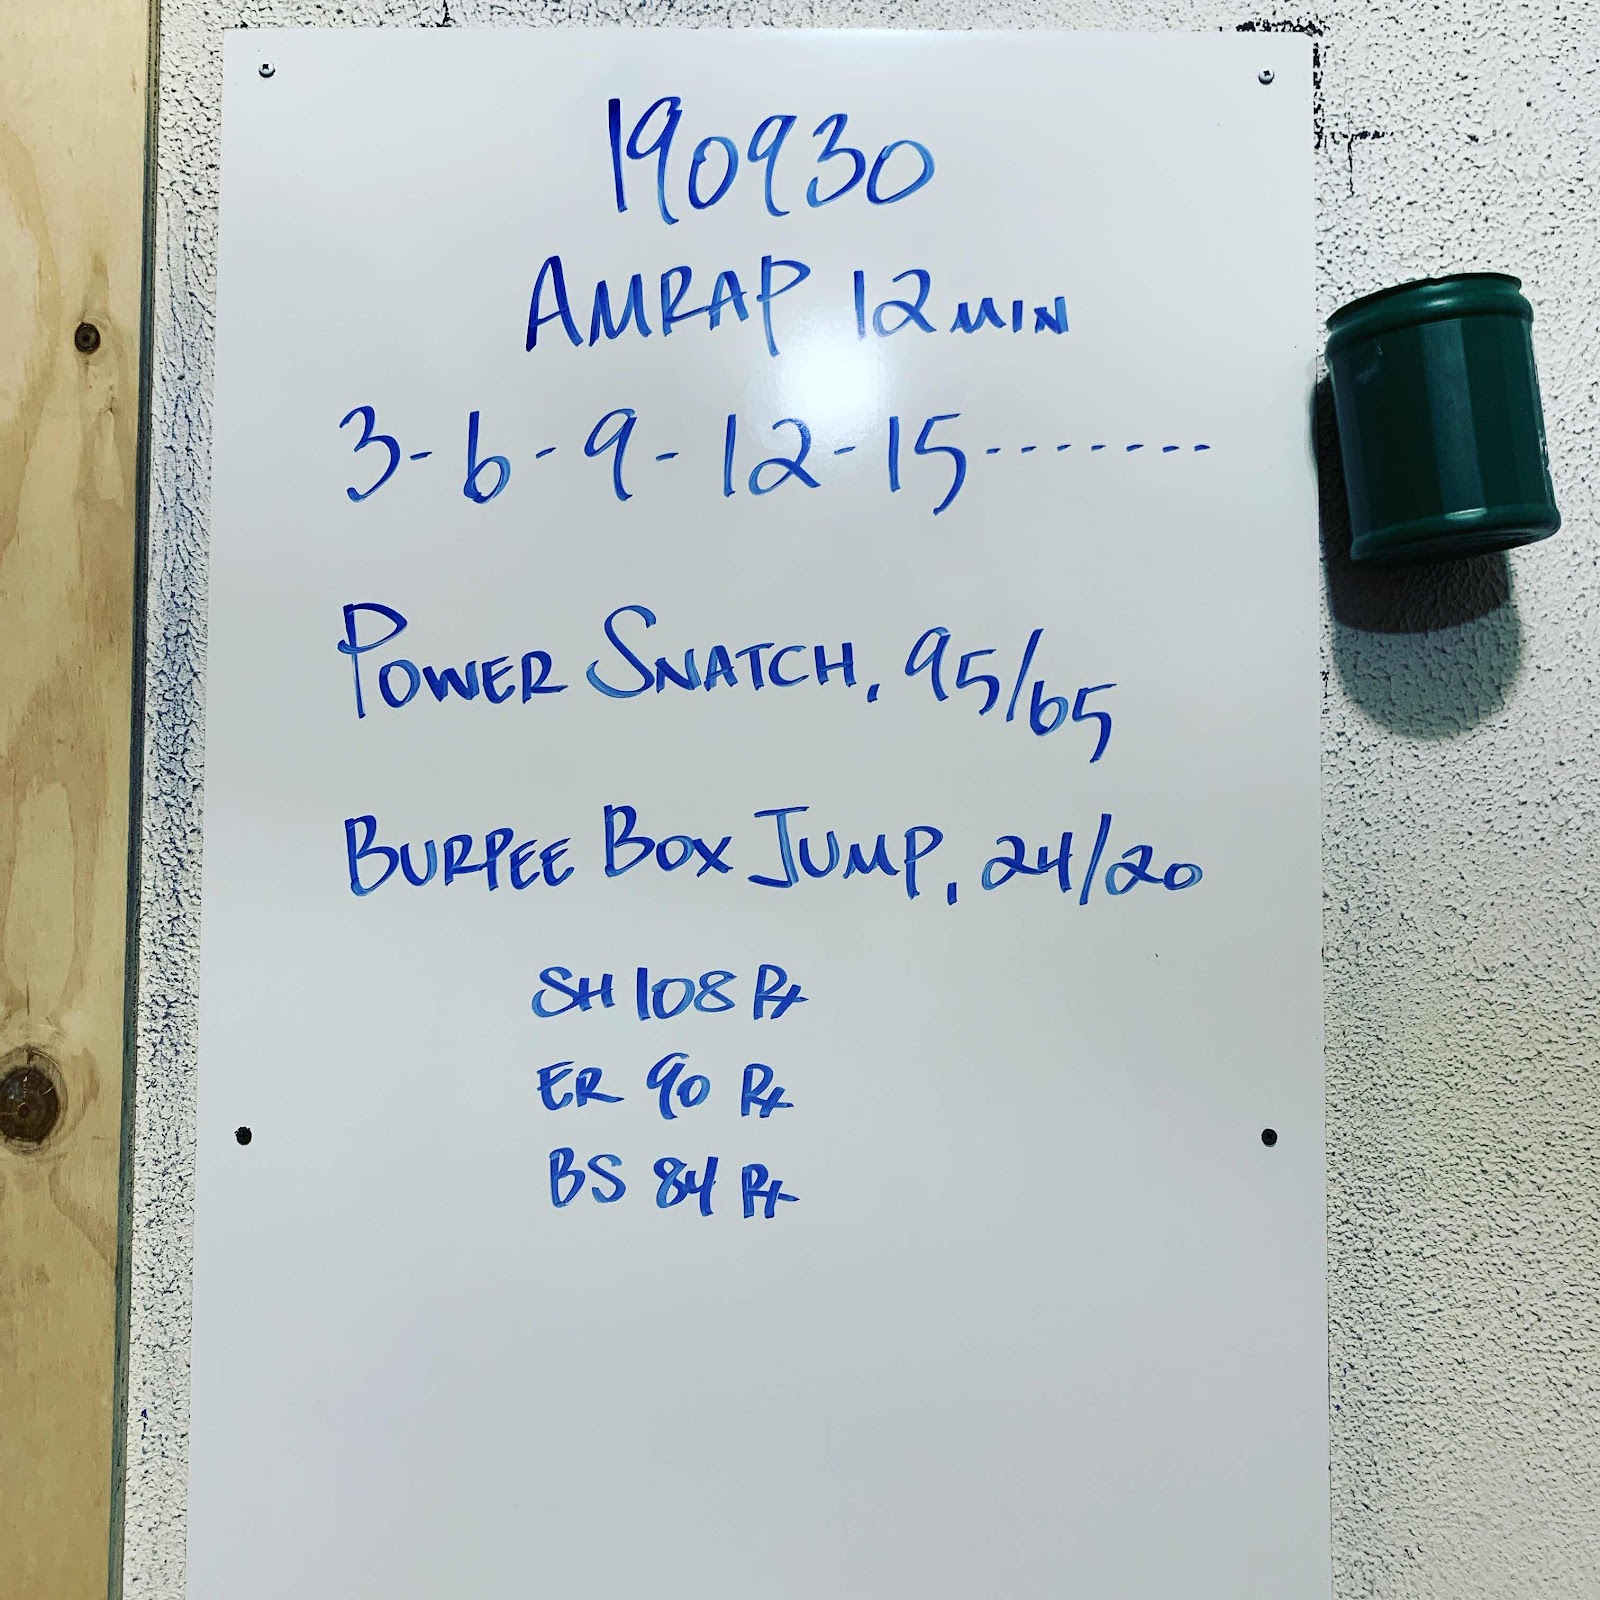 190930
AMRAP 12 MIN
3-6-9-12-15-------
POWER SNATCH, 95/65
BURPEE BOX JUMP, 24/20
SH 108 Rx
ER 90 Rx
BS 84 Rx